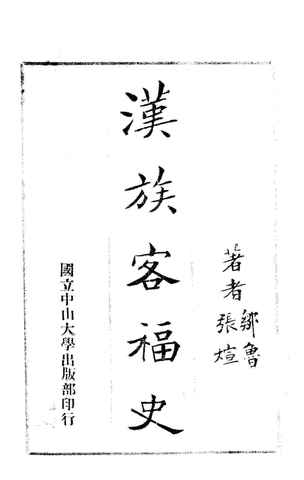 著者 鄒魯 張煊
漢族客福史
國立中山大學出版部印行